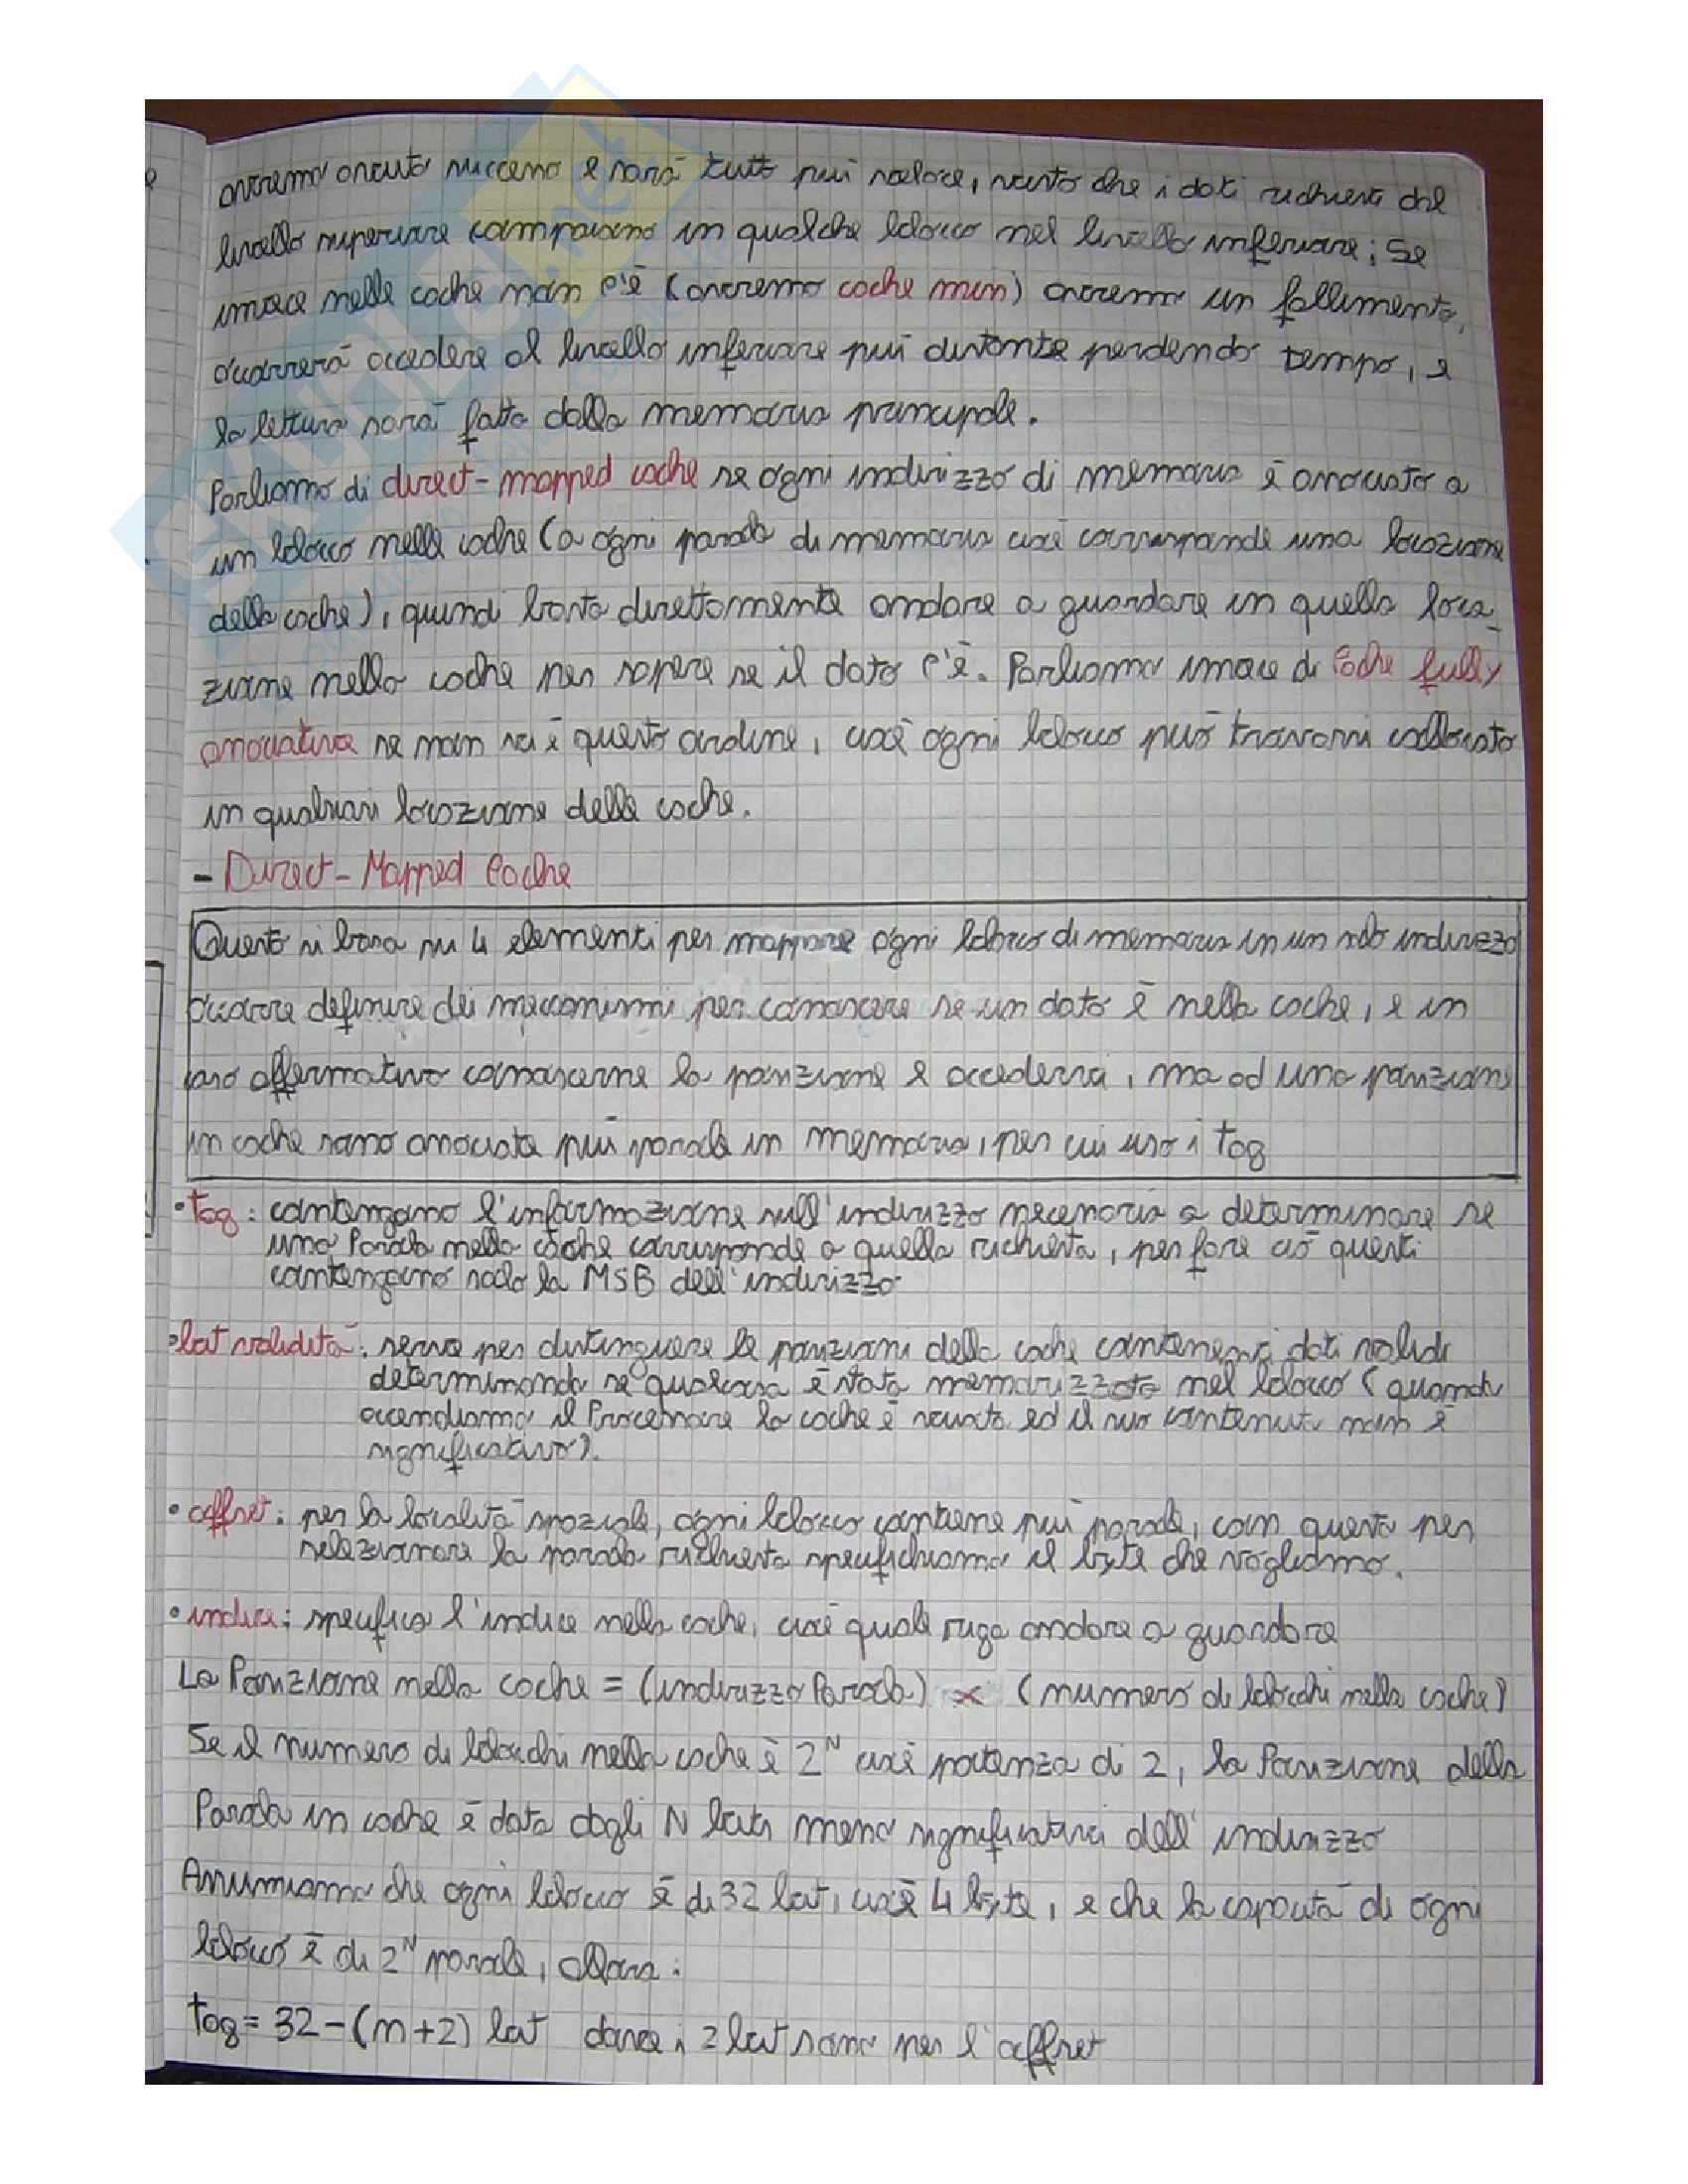 avremo avuto successo e sarà tutto più veloce, visto che i dati richiesti dal
livello superiore compaiono in qualche blocco nel livello inferiore; Se
invece nella cache non c'è (avremo cache miss) avremo un fallimento,
occorrerà accedere al livello inferiore più distante perdendo tempo, e
la lettura sarà fatta dalla memoria principale.
Parliamo di direct-mapped cache se ogni indirizzo di memoria è associato a
un blocco nella cache (a ogni parola di memoria cioè corrisponde una locazione
della cache), quindi basta direttamente andare a guardare in quella loca-
zione nella cache per sapere se il dato c'è. Parliamo invece di Cache fully
associativa se non vi è questo ordine, cioè ogni blocco può trovarsi collocato
in qualsiasi locazione della cache.
- Direct-Mapped Cache
Questo si basa su 4 elementi per mappare ogni blocco di memoria in un solo indirizzo
Occorre definire dei meccanismi per conoscere se un dato è nella cache, e in
caso affermativo conoscerne la posizione e accedervi, ma ad una posizione
in cache sono associate più parole in memoria, per cui uso i tag
• tag: contengono l'informazione sull'indirizzo necessaria a determinare se
una Parola nella cache corrisponde a quella richiesta, per fare ciò questi
contengono solo la MSB dell'indirizzo
• bit validità: serve per distinguere le posizioni della cache contenenti dati validi
determinando se qualcosa è stato memorizzato nel blocco (quando
accendiamo il Processore la cache è vuota ed il suo contenuto non è
significativo).
• offset: per la località spaziale, ogni blocco contiene più parole, con questo per
selezionare la parola richiesta specifichiamo il byte che vogliamo.
• indice: specifica l'indice nella cache, cioè quale riga andare a guardare
La Posizione nella cache = (indirizzo Parola) x (numero di blocchi nella cache)
Se il numero di blocchi nella cache è 2^N cioè potenza di 2, la Posizione della
Parola in cache è data dagli N bit meno significativi dell'indirizzo
Assumiamo che ogni blocco è di 32 bit, cioè 4 byte, e che la capacità di ogni
blocco è di 2^N parole, allora:
tag = 32-(n+2) bit dove i 2 bit sono per l'offset